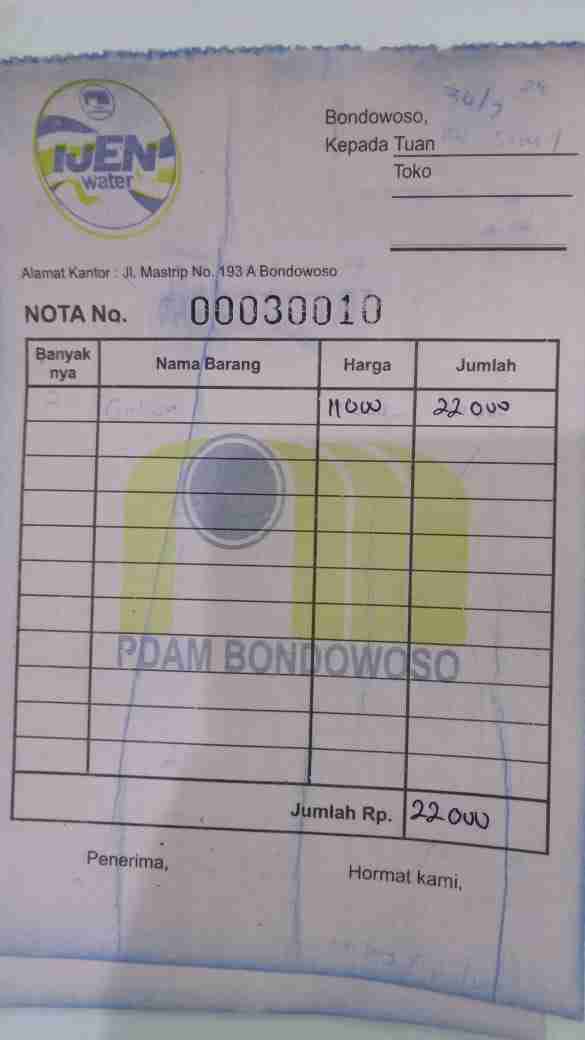 IJEN
water
Bondowoso, 30/7 24
Kepada Tuan
Toko
Alamat Kantor : Jl. Mastrip No. 193 A Bondowoso
NOTA No. 00030010
Banyak nya Nama Barang Harga Jumlah
2 Galon 11000 22000
PDAM BONDOWOSO
Jumlah Rp. 22000
Penerima, Hormat kami,